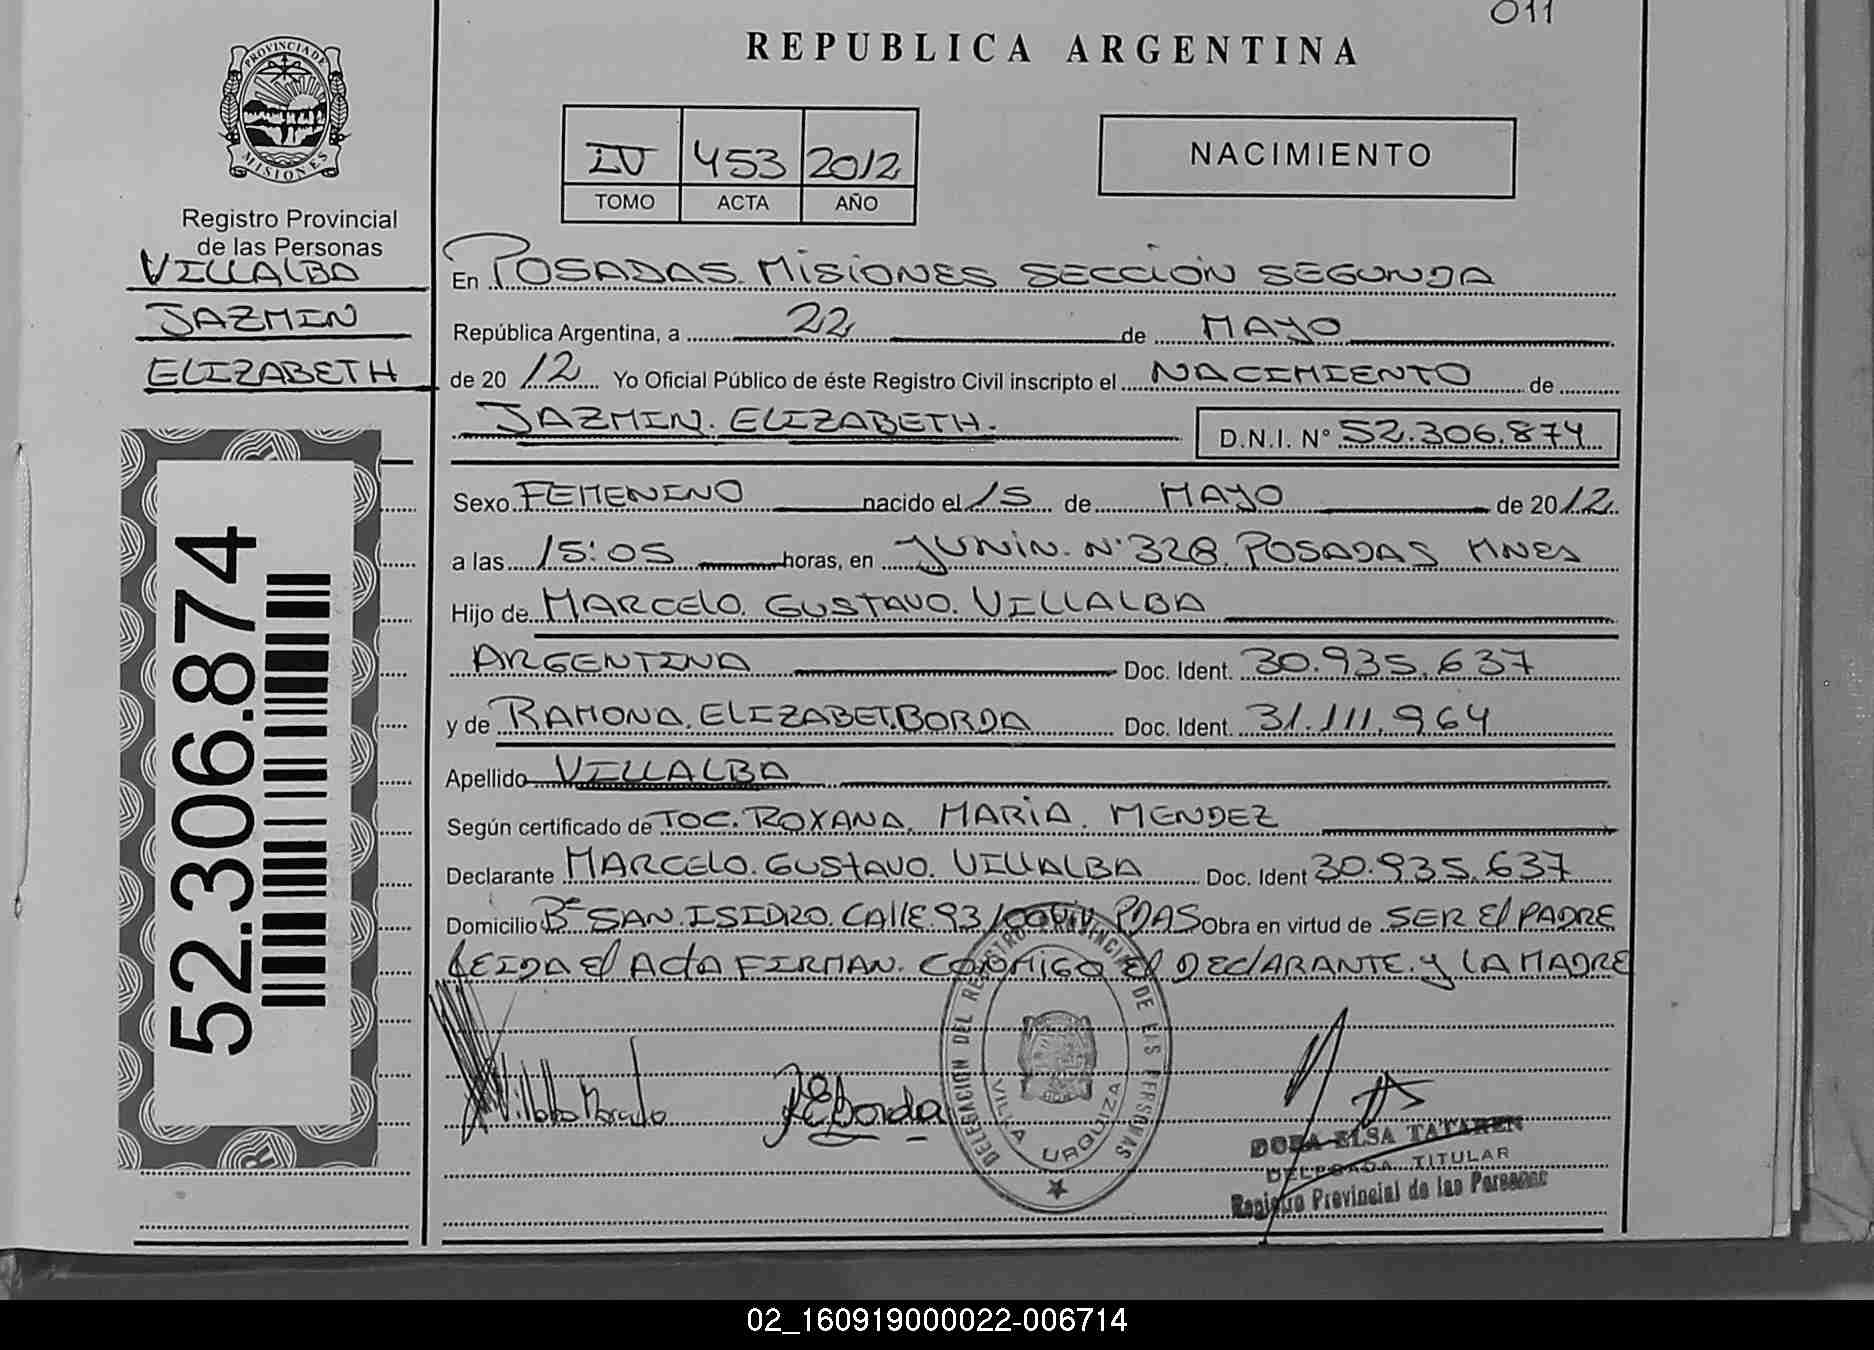 011
REPUBLICA ARGENTINA
PROVINCIA DE MISIONES
IV 453 2012
TOMO ACTA AÑO
NACIMIENTO
Registro Provincial
de las Personas
VILLALBA
JAZMIN
ELIZABETH
52.306.874
En POSADAS. MISIONES SECCIÓN SEGUNDA
República Argentina, a 22 de MAYO
de 2012 Yo Oficial Público de éste Registro Civil inscripto el NACIMIENTO de
JAZMIN. ELIZABETH. D.N.I. N° 52.306.874
Sexo FEMENINO nacido el 15 de MAYO de 2012
a las 15:05 horas, en JUNIN. N° 328. POSADAS MNES
Hijo de MARCELO. GUSTAVO. VILLALBA
ARGENTINA Doc. Ident. 30.935.637
y de RAMONA. ELIZABET. BORDA Doc. Ident. 31.111.964
Apellido VILLALBA
Según certificado de TOC. ROXANA. MARIA. MENDEZ
Declarante MARCELO. GUSTAVO. VILLALBA Doc. Ident 30.935.637
Domicilio B° SAN. ISIDRO. CALLE 93 PDAS Obra en virtud de SER El PADRE
LEIDA El ActA FIRMAN. CONMIGO El DEClARANTE. y LA MADRE
Villalba Marcelo
R E Borda
DELEGACION DEL REGISTRO PROVINCIAL DE LAS PERSONAS
VILLA URQUIZA
DORA ELSA TATAREN
DELEGADA TITULAR
Registro Provincial de las Personas
02_160919000022-006714